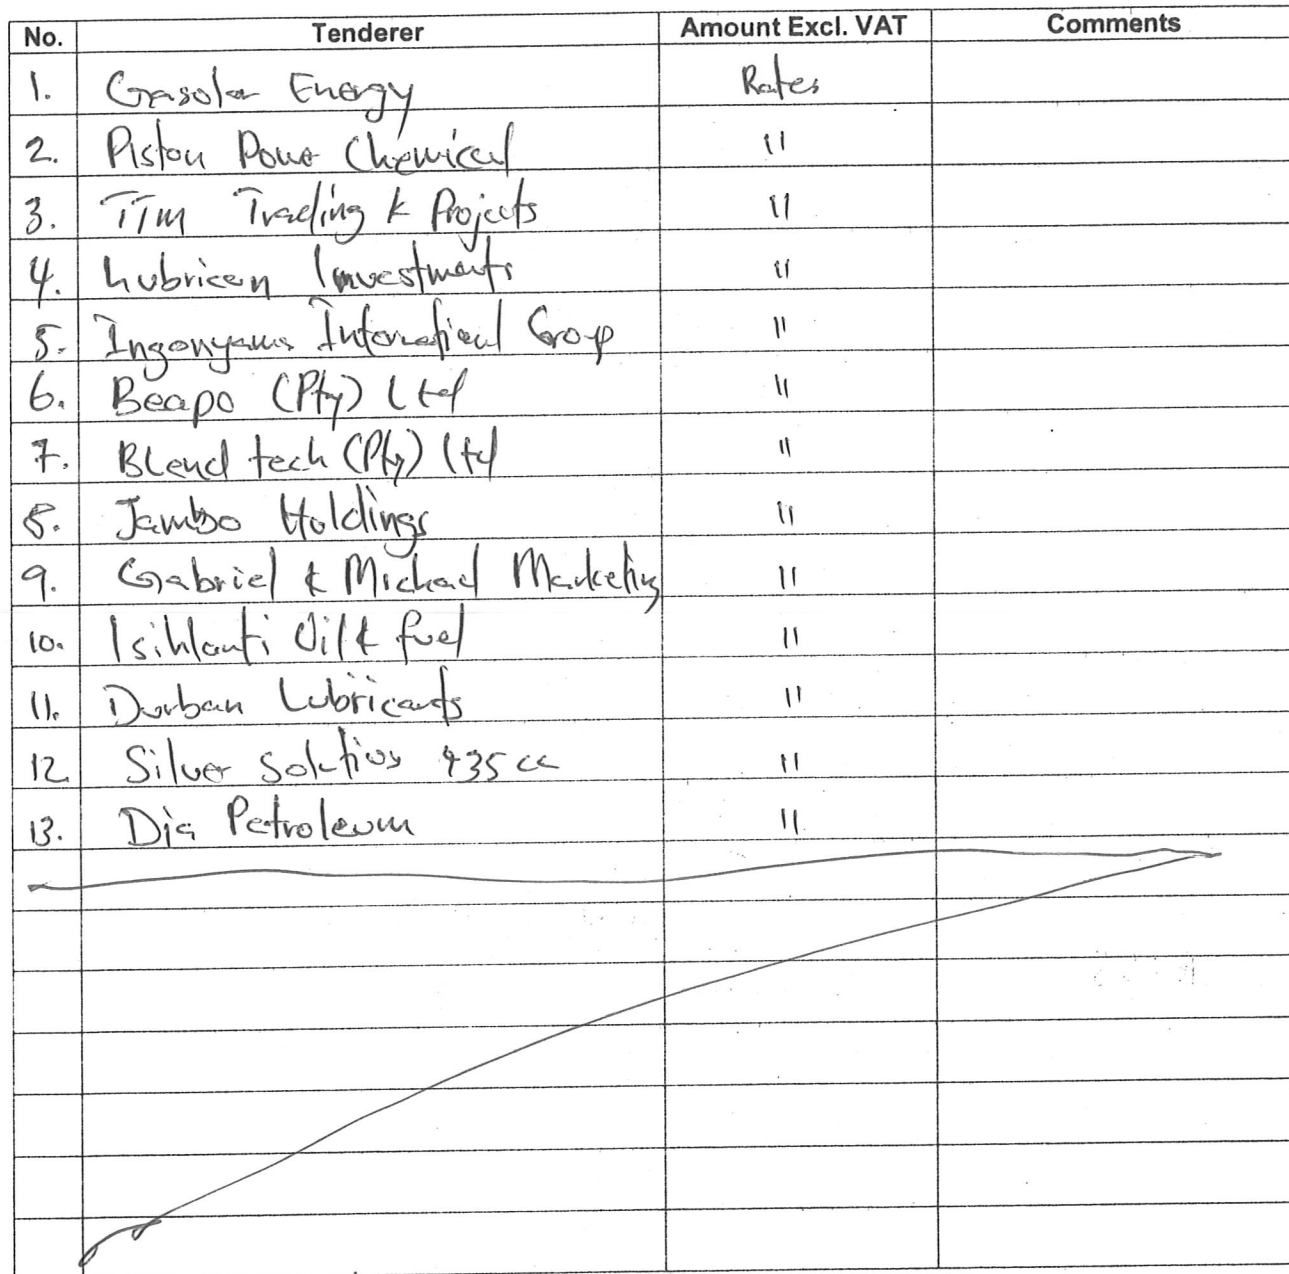 No. Tenderer Amount Excl. VAT Comments
1. Gasolar Energy Rates
2. Piston Power Chemical "
3. TTM Trading & Projects "
4. Lubricon Investments "
5. Ingonyama International Group "
6. Beapo (Pty) Ltd "
7. Blend tech (Pty) Ltd "
8. Jambo Holdings "
9. Gabriel & Michael Marketing "
10. Isihlanti Oil & fuel "
11. Durban Lubricants "
12. Silver Solutions 435 cc "
13. Dia Petroleum "